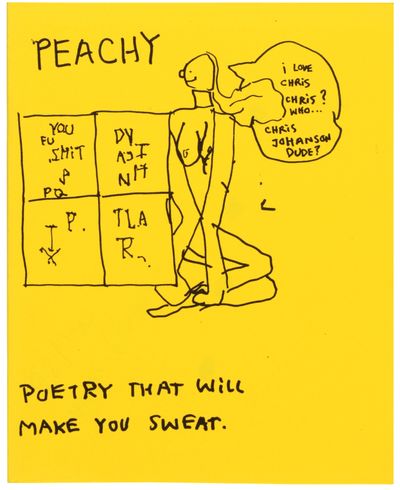 PEACHY
i LOVE
CHRIS
CHRIS?
WHO...
CHRIS
JOHANSON
DUDE?
YOU
FU
SHIT
P.
TLA
R
POETRY THAT WiLL
MAKE YOU SWEAT.